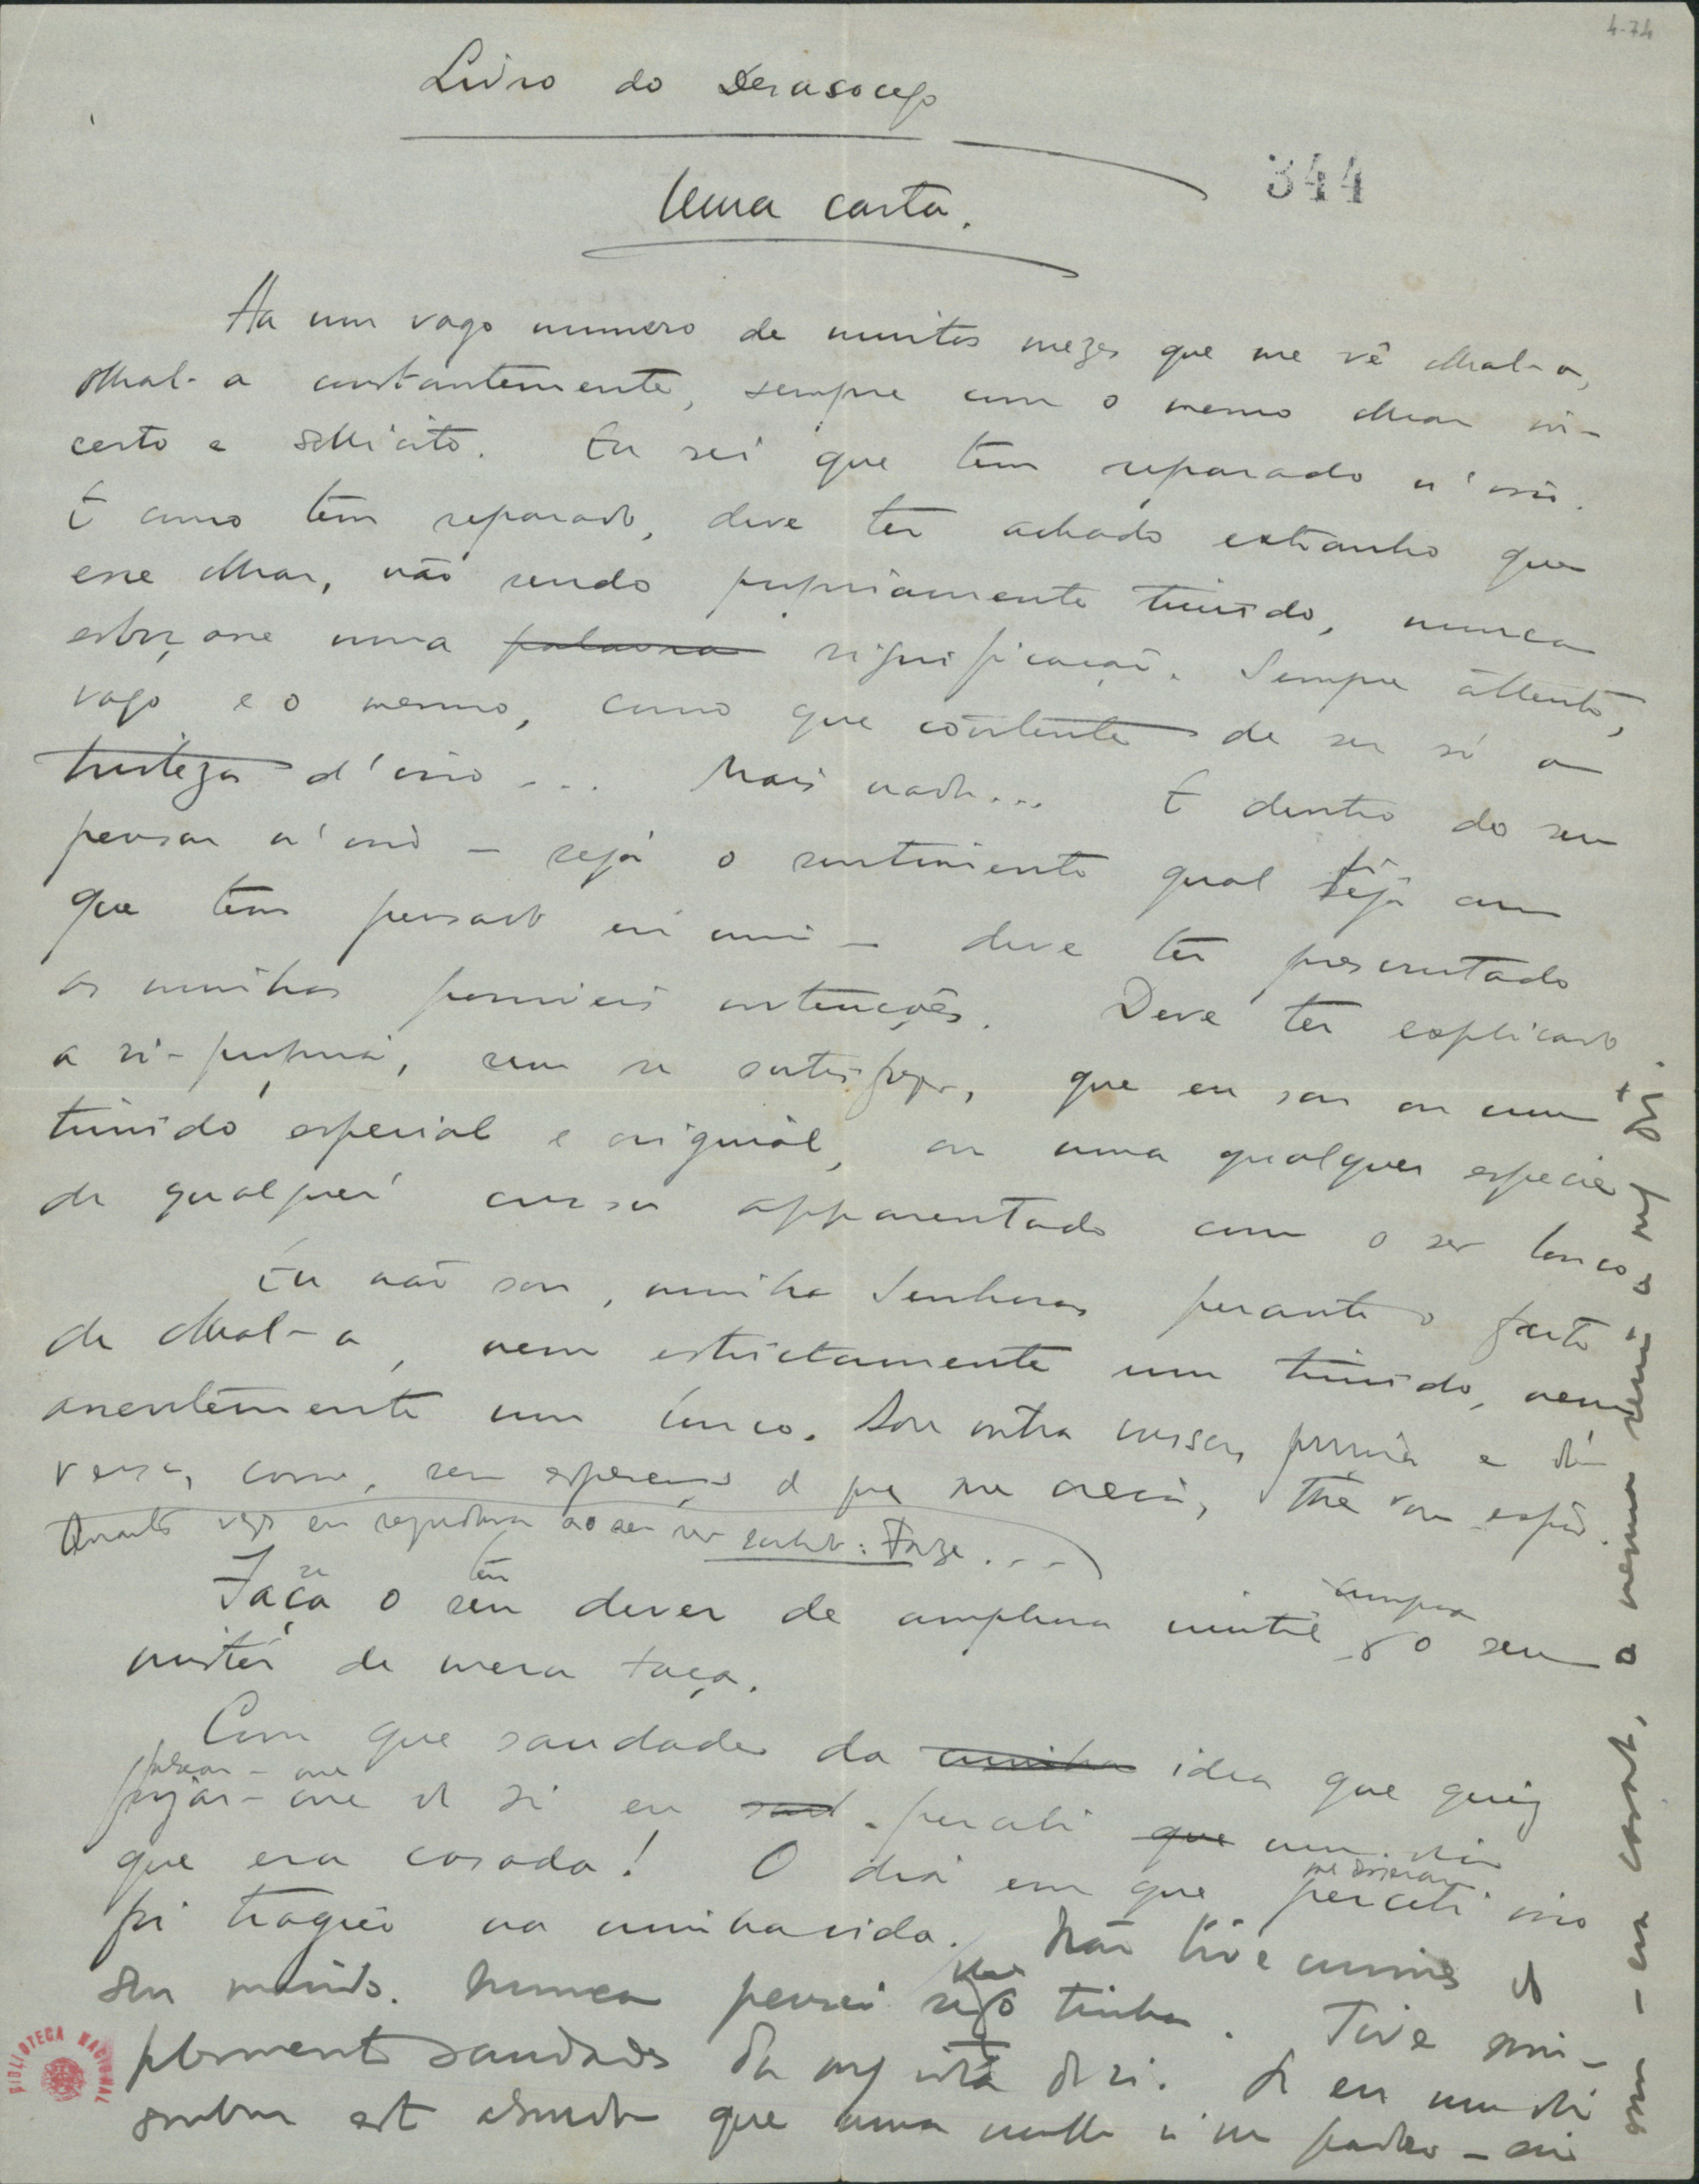 4-74
Livro do Desasocego
344
Uma carta.
Ha um vago numero de muitos mezes que me vê olhal-a,
olhal-a constantemente, sempre com o mesmo olhar in-
certo e sollicito. Eu sei que tem reparado n'isso.
E como tem reparado, deve ter achado extranho que
esse olhar, não sendo propriamente timido, nunca
esboçasse uma palavra significação. Sempre attento,
vago e o mesmo, como que contente de ser só a
tristeza d'isso... Mais nada... E dentro do seu
pensar n'isso — seja o sentimento qual seja com
que tem pensado em mim — deve ter prescrutado
as minhas possiveis intenções. Deve ter explicado
a si-propria, sem se satisfazer, que eu sou ou um
timido especial e original, ou uma qualquer especie
de qualquer cousa apparentado com o ser louco.
Eu não sou, minha Senhora, perante o facto
de olhal-a, nem estrictamente um timido, nem
assentemente um louco. Sou outra cousa, primeira e di-
versa, como, sem esperança de que me creia, lhe vou expôr.
Quantas vezes eu segredava ao seu ser sonhado: Faça...
se
tem
Faça o seu dever de amphora inutil, cumpra
o seu
mister de mera taça.
Com que saudades da minha idea que quiz
forjar-me de si eu percebi que um dia
que era casada! O dia em que percebi isso
foi tragico na minha vida. Não tive ciumes do
seu marido. Nunca pensei se o tinha. Tive sim-
plesmente saudades da m/ idéa de si. Se eu um dia
soubesse este absurdo que uma mulher n'um quadro — sim
essa — era casada, a mesma seria a m/ dôr.
BIBLIOTECA NACIONAL